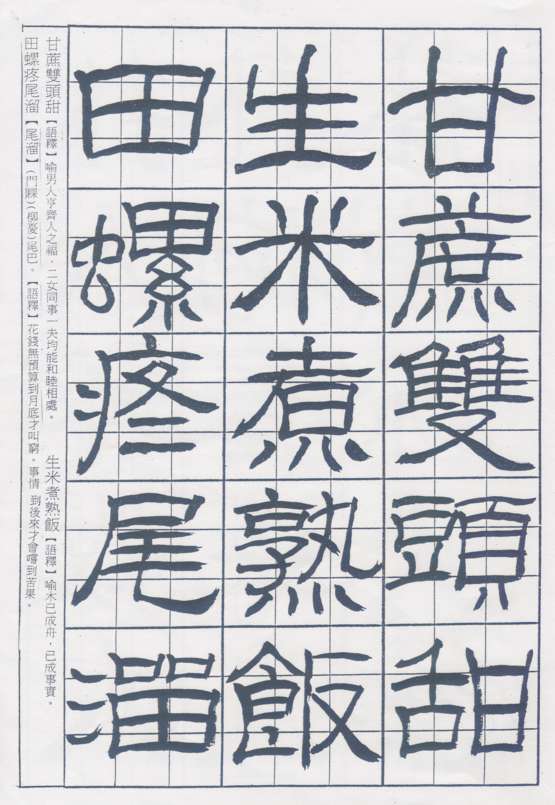 甘蔗雙頭甜
生米煮熟飯
田螺疼尾溜
甘蔗雙頭甜【語釋】喻男人亨齊人之福,二女同事一夫均能和睦相處。
生米煮熟飯【語釋】喻木已成舟,已成事實。
田螺疼尾溜【尾溜】(門睬)(柳憂)尾巴。【語釋】花錢無預算到月底才叫窮。事情 到後來才會嚐到苦果。